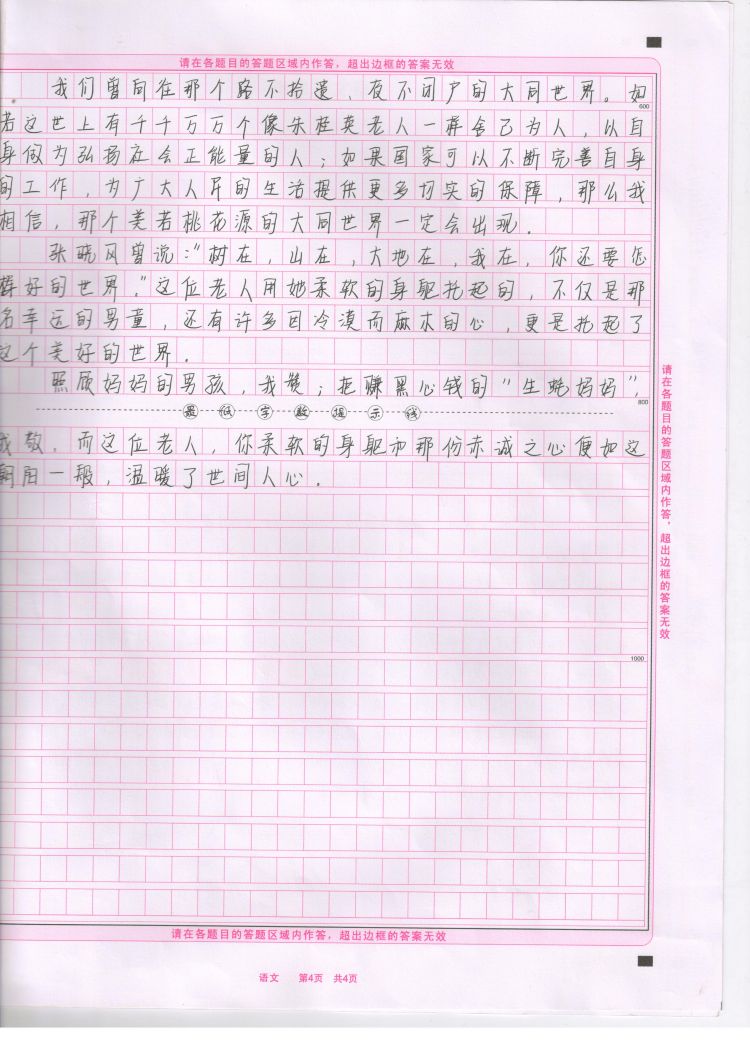 请在各题目的答题区域内作答，超出边框的答案无效
我们曾向往那个路不拾遗、夜不闭户的大同世界。如
600
若这世上有千千万万个像朱桂英老人一样舍己为人，以自
身做为弘扬社会正能量的人；如果国家可以不断完善自身
的工作，为广大人民的生活提供更多切实的保障，那么我
相信，那个美若桃花源的大同世界一定会出现.
张晓风曾说：“树在，山在，大地在，我在，你还要怎
样好的世界.”这位老人用她柔软的身躯托起的，不仅是那
名幸运的男童，还有许多因冷漠而麻木的心，更是托起了
这个美好的世界.
照顾妈妈的男孩，我赞；拒赚黑心钱的“生蚝妈妈”，
800
最低字数提示线
我敬.而这位老人，你柔软的身躯和那份赤诚之心便如这
朝阳一般，温暖了世间人心.
1000
请在各题目的答题区域内作答，超出边框的答案无效
请在各题目的答题区域内作答，超出边框的答案无效
语文 第4页 共4页